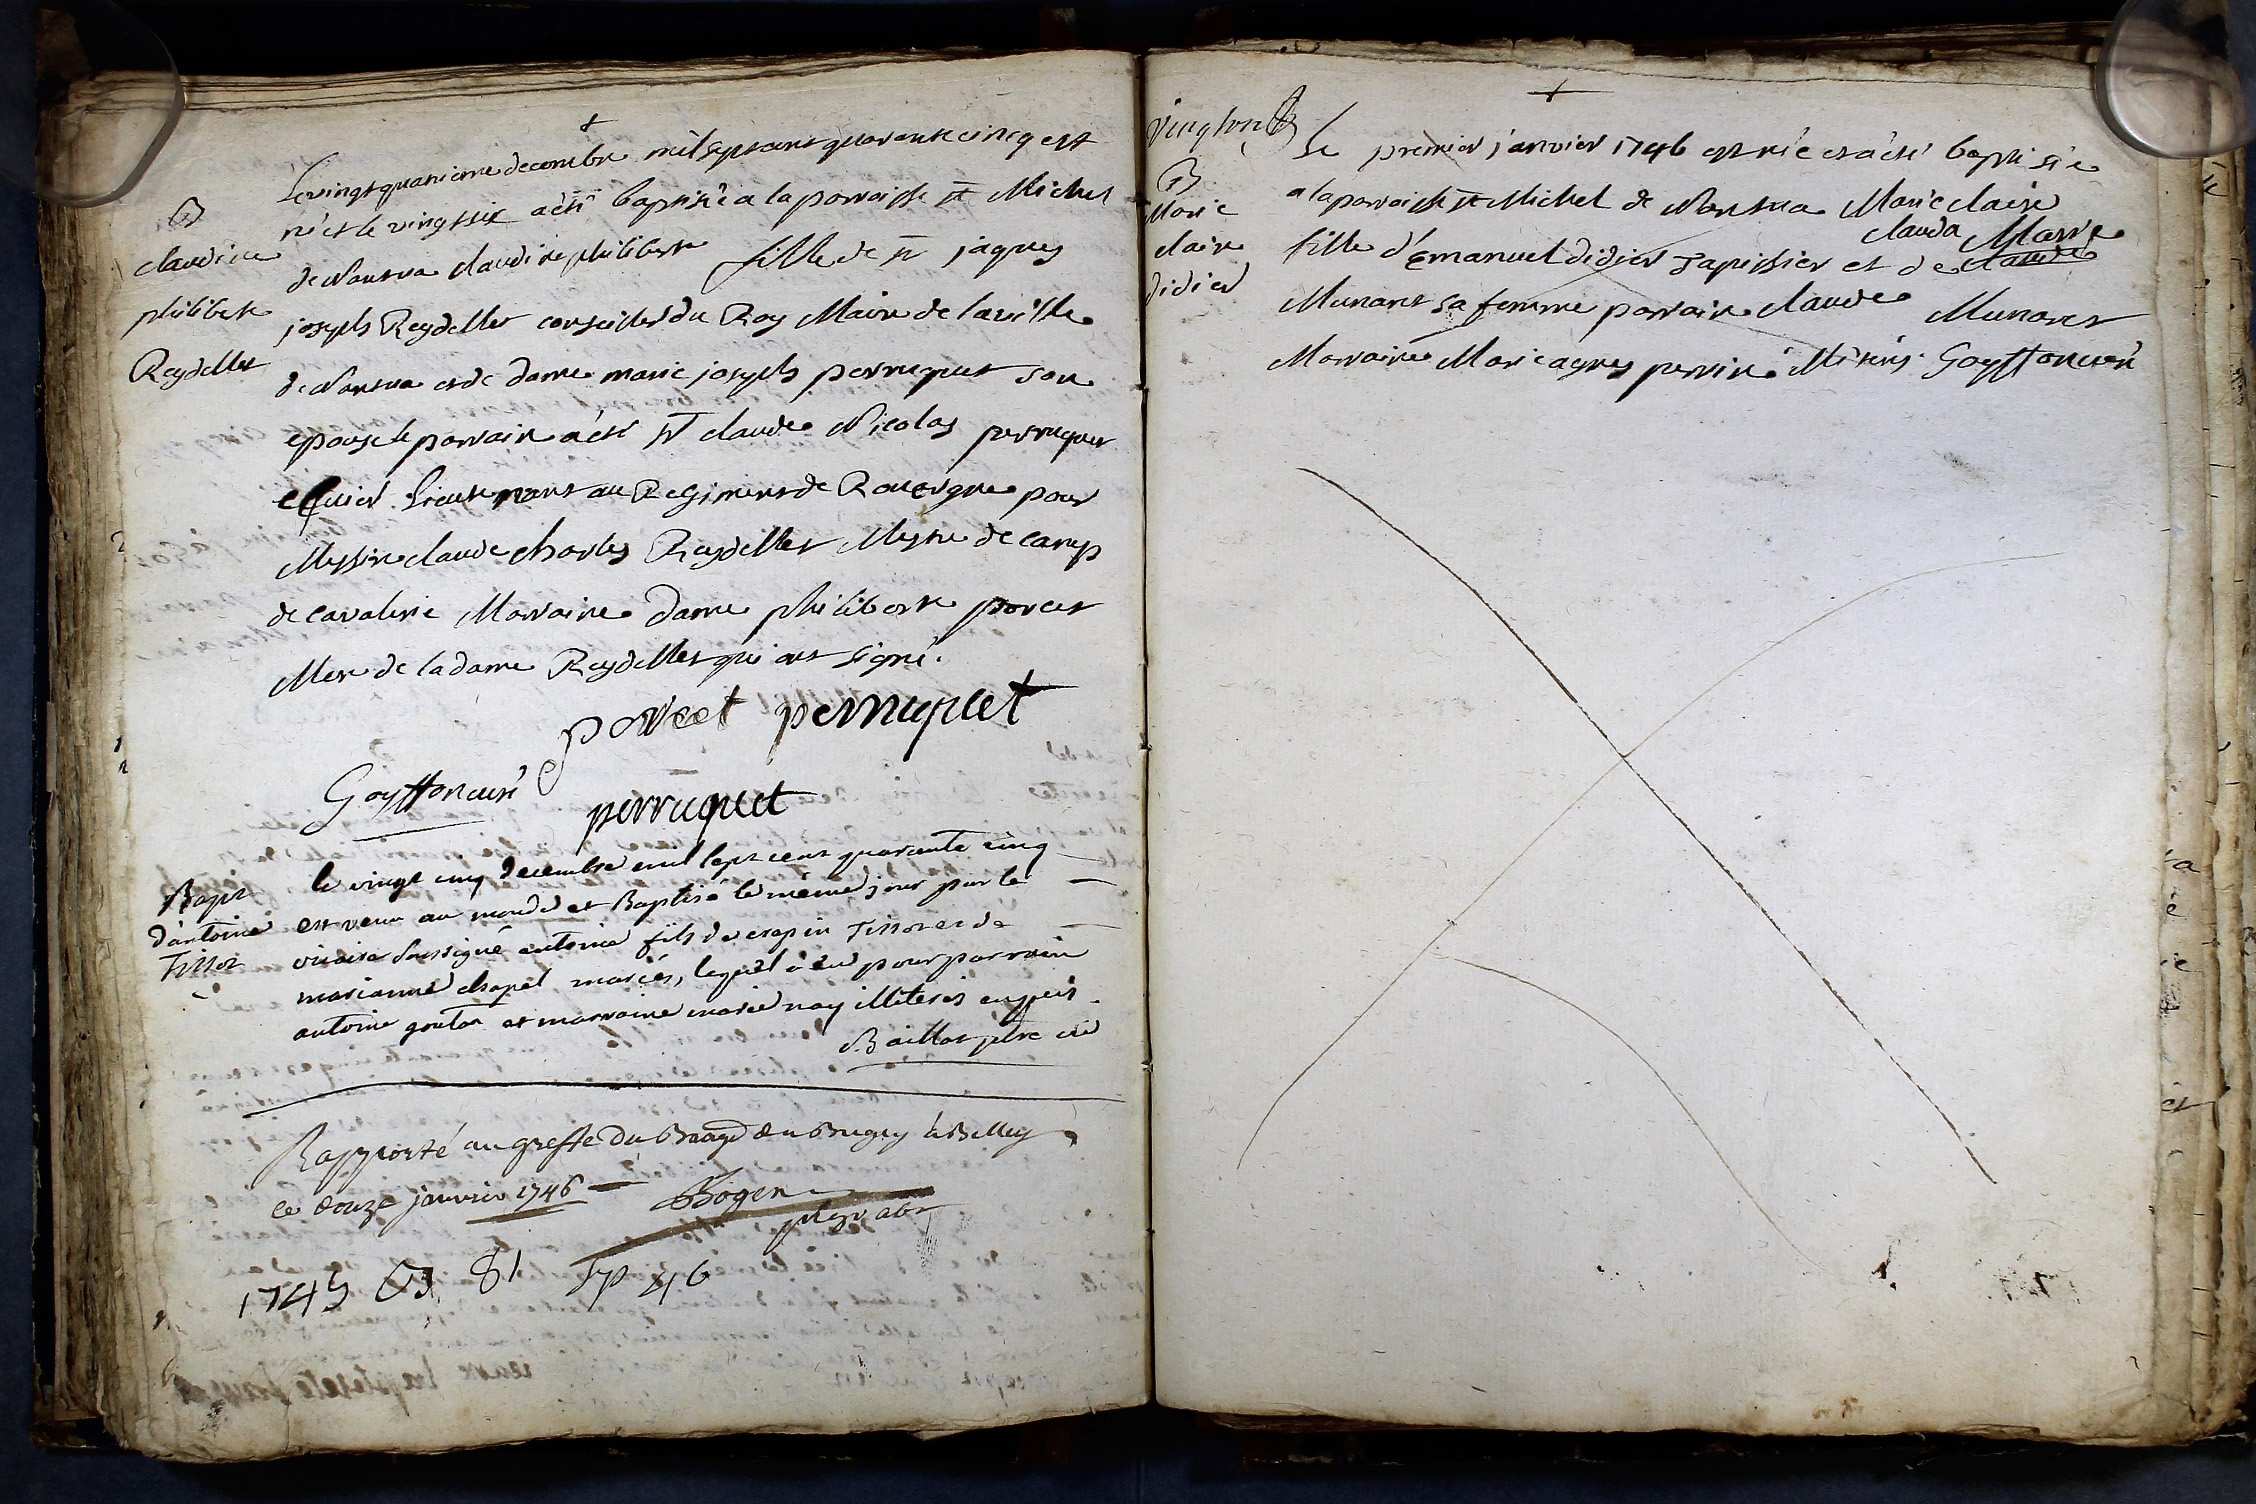 Le vingt quatrieme decembre mil sept cent quarante cinq est
née et le vingt six a été baptisée a la paroisse st Michel
de Nantua claudine philiberte fille de sr jaques
joseph Reydellet conseiller du Roy Maire de la ville
de Nantua et de dame marie joseph perruquet son
epouse le parrain a été sr claude Nicolas perruquet
ecuier Lieutenant au Regiment de Rouergue pour
Messire claude charles Reydellet Mestre de camp
de cavalerie Marraine dame philiberte porcet
Mere de la dame Reydellet qui ont signé.
B
claudine
philiberte
Reydellet
porcet perruquet
Goyffon curé
perruquet
Bapt
d'antoine
Tissot
le vingt cinq decembre mil sept cent quarante cinq
est venu au monde et Baptisé le même jour par le
vicaire soussigné antoine fils de crepin Tissot et de
marianne chapel mariés, lequel a eu pour parrain
antoine gouton et marraine marie nay illiteres enquis
Baillat ptre vic
Rapporté au greffe du Baage du Bugey à Belley
ce douze janvier 1746
Bogen
1745 B 81 Sp 46
vington
B
Marie
claire
didier
Le premier janvier 1746 est née et a été baptisée
a la paroisse st Michel de Nantua Marie claire
fille d'Emanuel didier Tapissier et de claude
clauda Marie
Munaret sa femme parrain claude Munaret
Marraine Marie agnes perrine illiterés. Goyffon curé